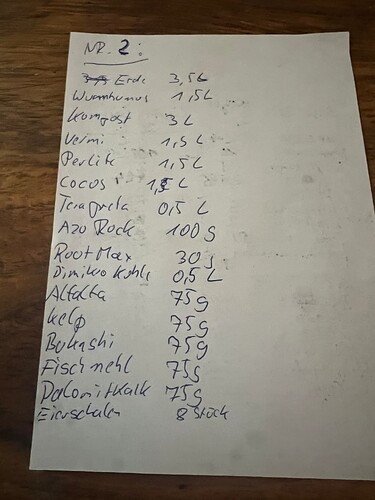 NR. 2:
Erde 3,5L
Wurmhumus 1,5L
Kompost 3L
Vermi 1,5L
Perlite 1,5L
Cocos 1,5L
Terapreta 0,5L
Azo Rock 100g
Root Max 30g
Dimiko Kohle 0,5L
Alfalfa 75g
Kelp 75g
Bokashi 75g
Fischmehl 75g
Dolomitkalk 75g
Eierschalen 8 Stück